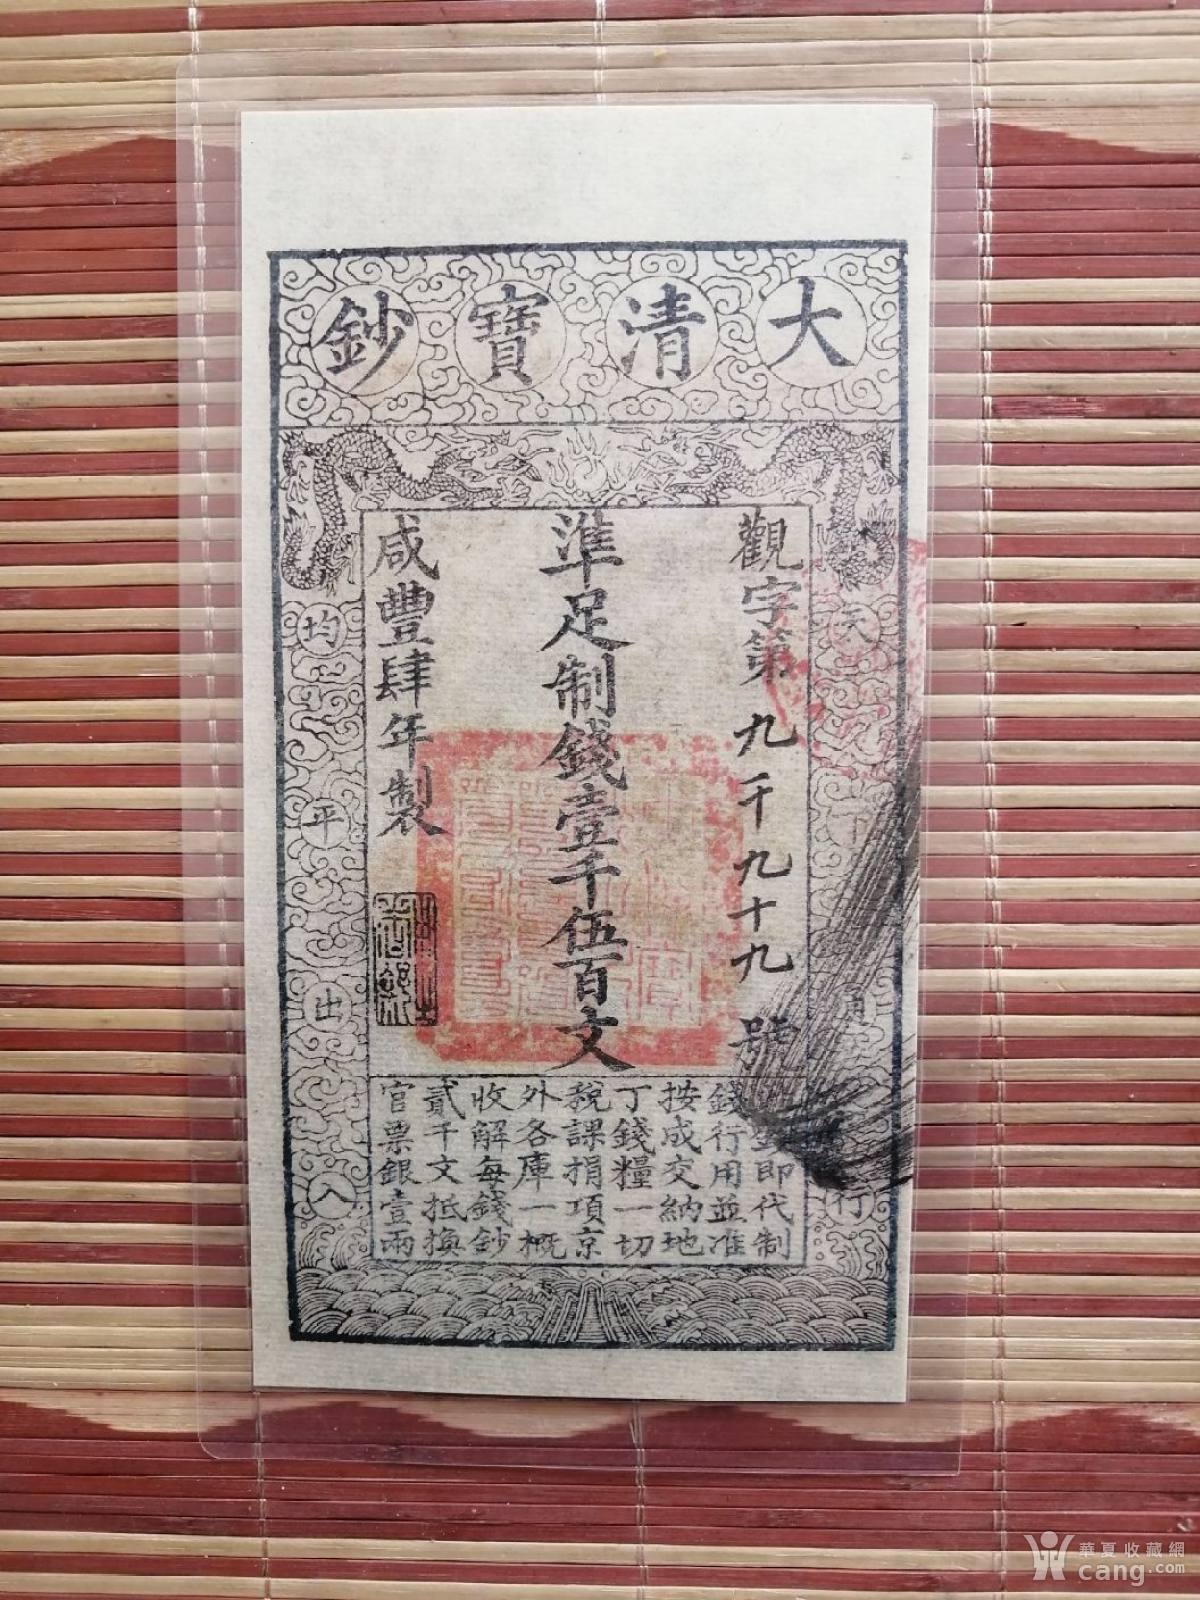 大清寶鈔
天下行
觀字第 九千九十九 號
準足制錢壹千伍百文
咸豐肆年製
均平出入
鈔即代制
錢行用並准
按成交納地
丁錢糧一切
稅課捐項京
外各庫一概
收解每錢鈔
貳千文抵換
官票銀壹兩
華夏收藏網
cang.com